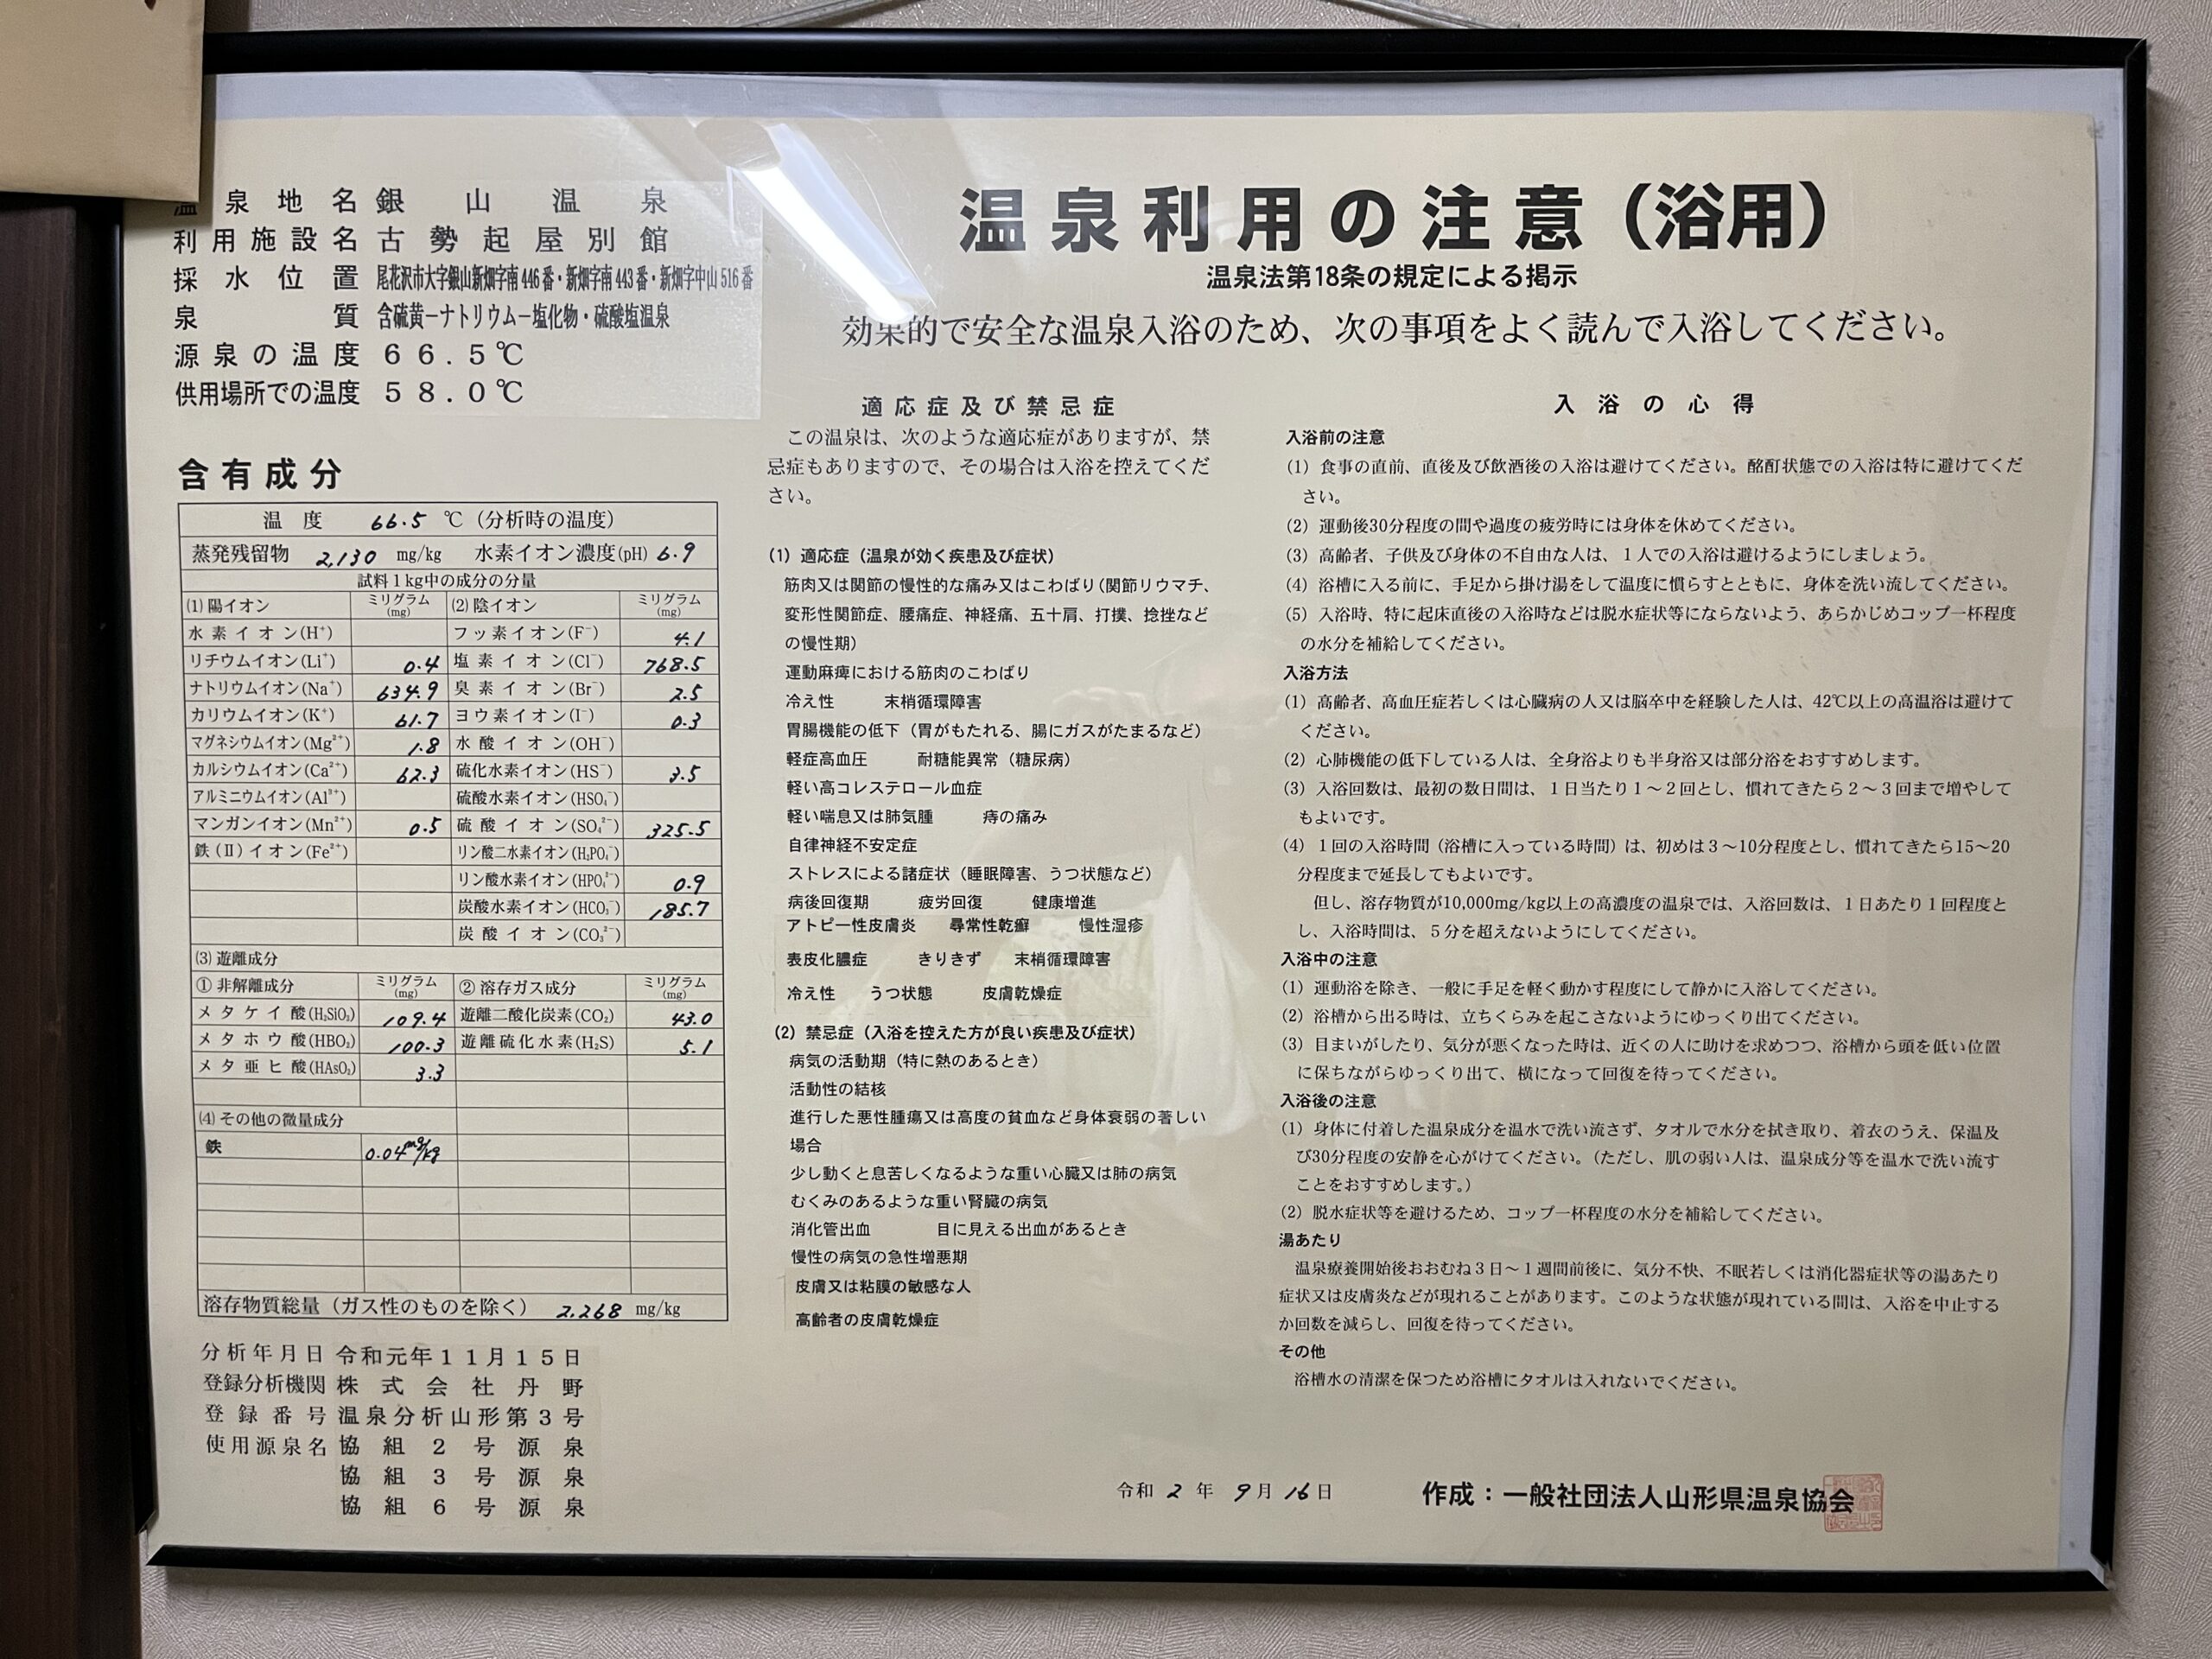 温泉利用の注意（浴用）
温泉法第18条の規定による掲示
効果的で安全な温泉入浴のため、次の事項をよく読んで入浴してください。
温泉地名 銀山温泉
利用施設名 古勢起屋別館
採水位置 尾花沢市大字銀山新畑字南446番・新畑字南443番・新畑字中山516番
泉質 含硫黄－ナトリウム－塩化物・硫酸塩温泉
源泉の温度 66.5℃
供用場所での温度 58.0℃
含有成分
温度 66.5 ℃（分析時の温度）
蒸発残留物 2,130 mg/kg 水素イオン濃度(pH) 6.9
試料1kg中の成分の分量
(1) 陽イオン ミリグラム(mg) (2) 陰イオン ミリグラム(mg)
水素イオン(H⁺) フッ素イオン(F⁻) 4.1
リチウムイオン(Li⁺) 0.4 塩素イオン(Cl⁻) 768.5
ナトリウムイオン(Na⁺) 634.9 臭素イオン(Br⁻) 2.5
カリウムイオン(K⁺) 61.7 ヨウ素イオン(I⁻) 0.3
マグネシウムイオン(Mg²⁺) 1.8 水酸イオン(OH⁻)
カルシウムイオン(Ca²⁺) 62.3 硫化水素イオン(HS⁻) 3.5
アルミニウムイオン(Al³⁺) 硫酸水素イオン(HSO₄⁻)
マンガンイオン(Mn²⁺) 0.5 硫酸イオン(SO₄²⁻) 325.5
鉄(II)イオン(Fe²⁺) リン酸二水素イオン(H₂PO₄⁻)
リン酸水素イオン(HPO₄²⁻) 0.9
炭酸水素イオン(HCO₃⁻) 185.7
炭酸イオン(CO₃²⁻)
(3) 遊離成分
① 非解離成分 ミリグラム(mg) ② 溶存ガス成分 ミリグラム(mg)
メタケイ酸(H₂SiO₃) 109.4 遊離二酸化炭素(CO₂) 43.0
メタホウ酸(HBO₂) 100.3 遊離硫化水素(H₂S) 5.1
メタ亜ヒ酸(HAsO₂) 3.3
(4) その他の微量成分
鉄 0.04mg/kg
溶存物質総量（ガス性のものを除く） 2,268 mg/kg
分析年月日 令和元年11月15日
登録分析機関 株式会社丹野
登録番号 温泉分析山形第3号
使用源泉名 協組2号源泉
協組3号源泉
協組6号源泉
適応症及び禁忌症
この温泉は、次のような適応症がありますが、禁
忌症もありますので、その場合は入浴を控えてくだ
さい。
(1) 適応症（温泉が効く疾患及び症状）
筋肉又は関節の慢性的な痛み又はこわばり（関節リウマチ、
変形性関節症、腰痛症、神経痛、五十肩、打撲、捻挫など
の慢性期）
運動麻痺における筋肉のこわばり
冷え性 末梢循環障害
胃腸機能の低下（胃がもたれる、腸にガスがたまるなど）
軽症高血圧 耐糖能異常（糖尿病）
軽い高コレステロール血症
軽い喘息又は肺気腫 痔の痛み
自律神経不安定症
ストレスによる諸症状（睡眠障害、うつ状態など）
病後回復期 疲労回復 健康増進
アトピー性皮膚炎 尋常性乾癬 慢性湿疹
表皮化膿症 きりきず 末梢循環障害
冷え性 うつ状態 皮膚乾燥症
(2) 禁忌症（入浴を控えた方が良い疾患及び症状）
病気の活動期（特に熱のあるとき）
活動性の結核
進行した悪性腫瘍又は高度の貧血など身体衰弱の著しい
場合
少し動くと息苦しくなるような重い心臓又は肺の病気
むくみのあるような重い腎臓の病気
消化管出血 目に見える出血があるとき
慢性の病気の急性増悪期
皮膚又は粘膜の敏感な人
高齢者の皮膚乾燥症
入浴の心得
入浴前の注意
(1) 食事の直前、直後及び飲酒後の入浴は避けてください。酩酊状態での入浴は特に避けてくだ
さい。
(2) 運動後30分程度の間や過度の疲労時には身体を休めてください。
(3) 高齢者、子供及び身体の不自由な人は、1人での入浴は避けるようにしましょう。
(4) 浴槽に入る前に、手足から掛け湯をして温度に慣らすとともに、身体を洗い流してください。
(5) 入浴時、特に起床直後の入浴時などは脱水症状等にならないよう、あらかじめコップ一杯程度
の水分を補給してください。
入浴方法
(1) 高齢者、高血圧症若しくは心臓病の人又は脳卒中を経験した人は、42℃以上の高温浴は避けて
ください。
(2) 心肺機能の低下している人は、全身浴よりも半身浴又は部分浴をおすすめします。
(3) 入浴回数は、最初の数日間は、1日当たり1～2回とし、慣れてきたら2～3回まで増やして
もよいです。
(4) 1回の入浴時間（浴槽に入っている時間）は、初めは3～10分程度とし、慣れてきたら15～20
分程度まで延長してもよいです。
但し、溶存物質が10,000mg/kg以上の高濃度の温泉では、入浴回数は、1日あたり1回程度と
し、入浴時間は、5分を超えないようにしてください。
入浴中の注意
(1) 運動浴を除き、一般に手足を軽く動かす程度にして静かに入浴してください。
(2) 浴槽から出る時は、立ちくらみを起こさないようにゆっくり出てください。
(3) 目まいがしたり、気分が悪くなった時は、近くの人に助けを求めつつ、浴槽から頭を低い位置
に保ちながらゆっくり出て、横になって回復を待ってください。
入浴後の注意
(1) 身体に付着した温泉成分を温水で洗い流さず、タオルで水分を拭き取り、着衣のうえ、保温及
び30分程度の安静を心がけてください。（ただし、肌の弱い人は、温泉成分等を温水で洗い流す
ことをおすすめします。）
(2) 脱水症状等を避けるため、コップ一杯程度の水分を補給してください。
湯あたり
温泉療養開始後おおむね3日～1週間前後に、気分不快、不眠若しくは消化器症状等の湯あたり
症状又は皮膚炎などが現れることがあります。このような状態が現れている間は、入浴を中止する
か回数を減らし、回復を待ってください。
その他
浴槽水の清潔を保つため浴槽にタオルは入れないでください。
令和 2 年 9 月 16 日 作成：一般社団法人山形県温泉協会